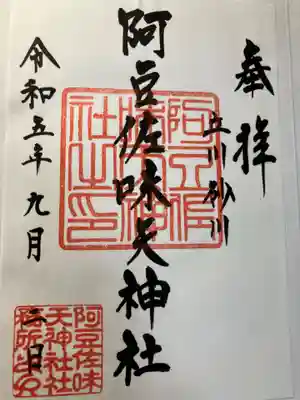 奉拝
立川砂川
阿豆佐味天神社
令和五年九月
二日
阿豆佐味
天神社
社之印
阿豆佐味
天神社社
務所之印